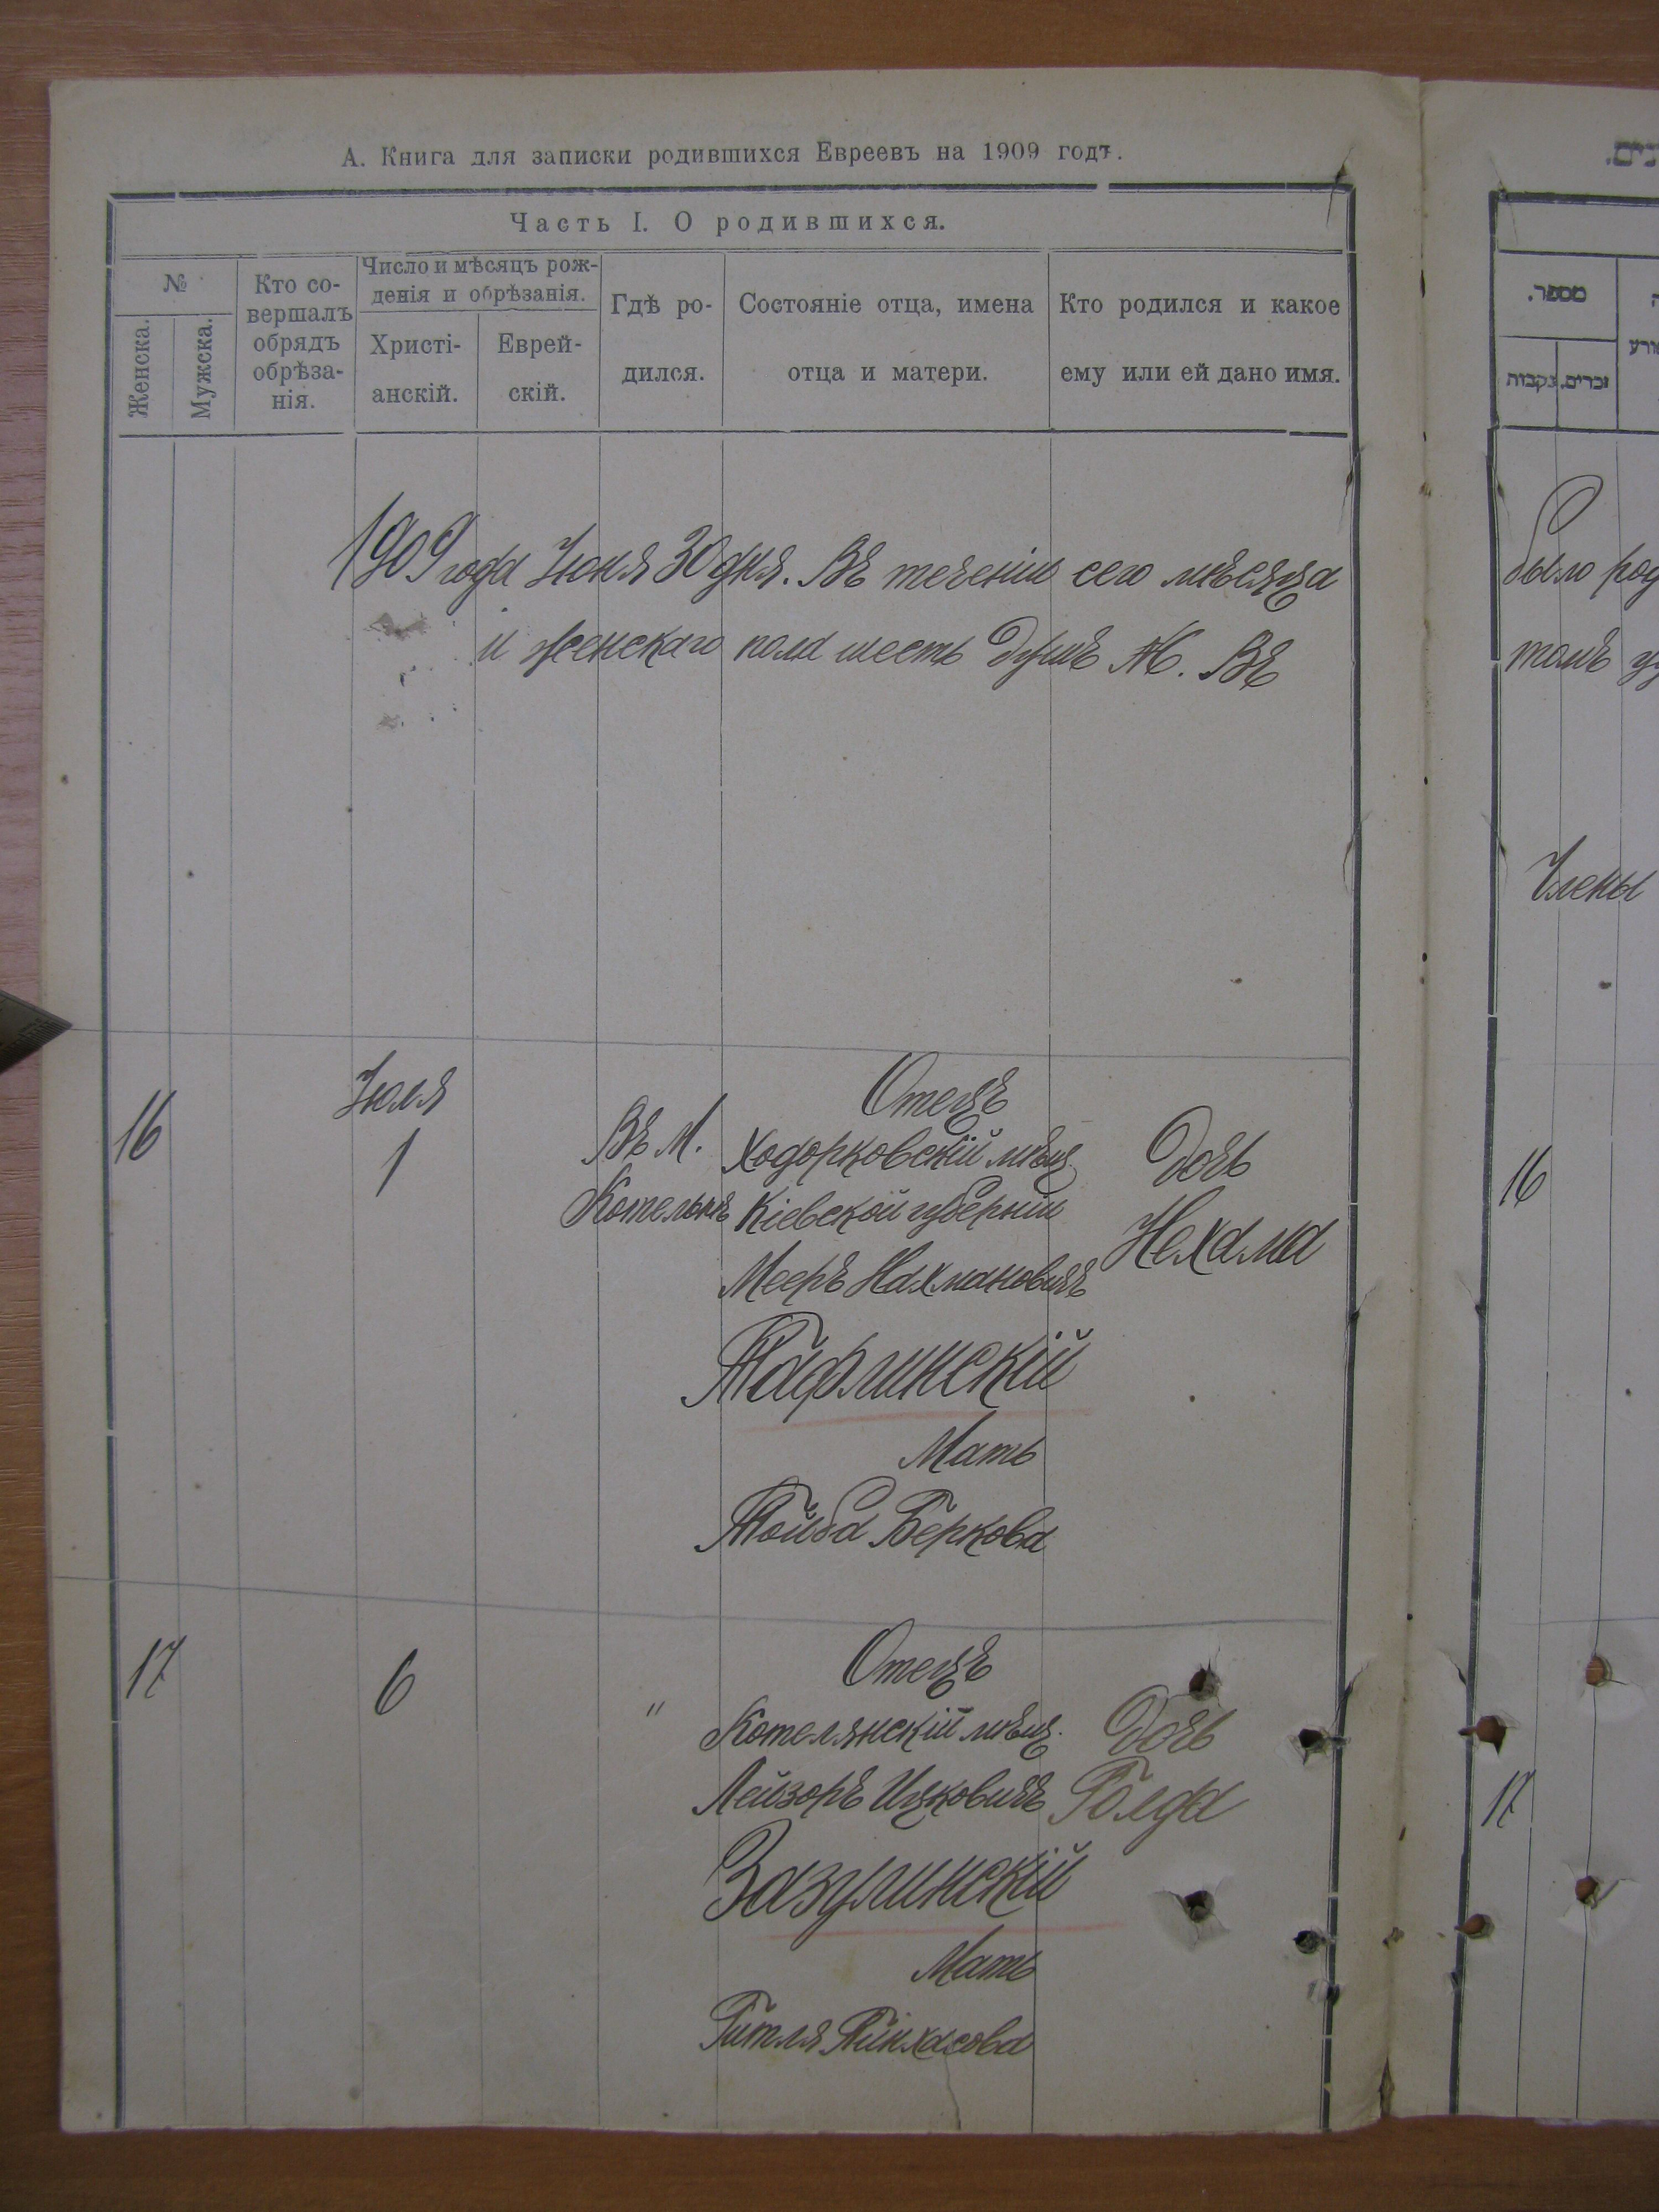 А. Книга для записки родившихся Евреевъ на 1909 годъ.
Часть I. О родившихся.
№
Женска.
Мужска.
Кто со-
вершалъ
обрядъ
обрѣза-
нія.
Число и мѣсяцъ рож-
денія и обрѣзанія.
Христі-
анскій.
Еврей-
скій.
Гдѣ ро-
дился.
Состояніе отца, имена
отца и матери.
Кто родился и какое
ему или ей дано имя.
1909 года Іюня 30 дня. Въ теченіи сего мѣсяца
и женскаго пола шесть душъ Ж. Въ
16
Іюля
1
Въ М.
Котельнѣ
Отецъ
Ходорковскій мѣщ.
Кіевской губерніи
Мееръ Нахмановичъ
Тафлинскій
Мать
Тойба Беркова
Дочь
Нехама
17
6
"
Отецъ
Котелянскій мѣщ.
Лейзоръ Ицковичъ
Зазулинскій
Мать
Гитля Пинхасова
Дочь
Голда
מספר.
זכרים.
נקבות
было род
томъ
Члены
16
17